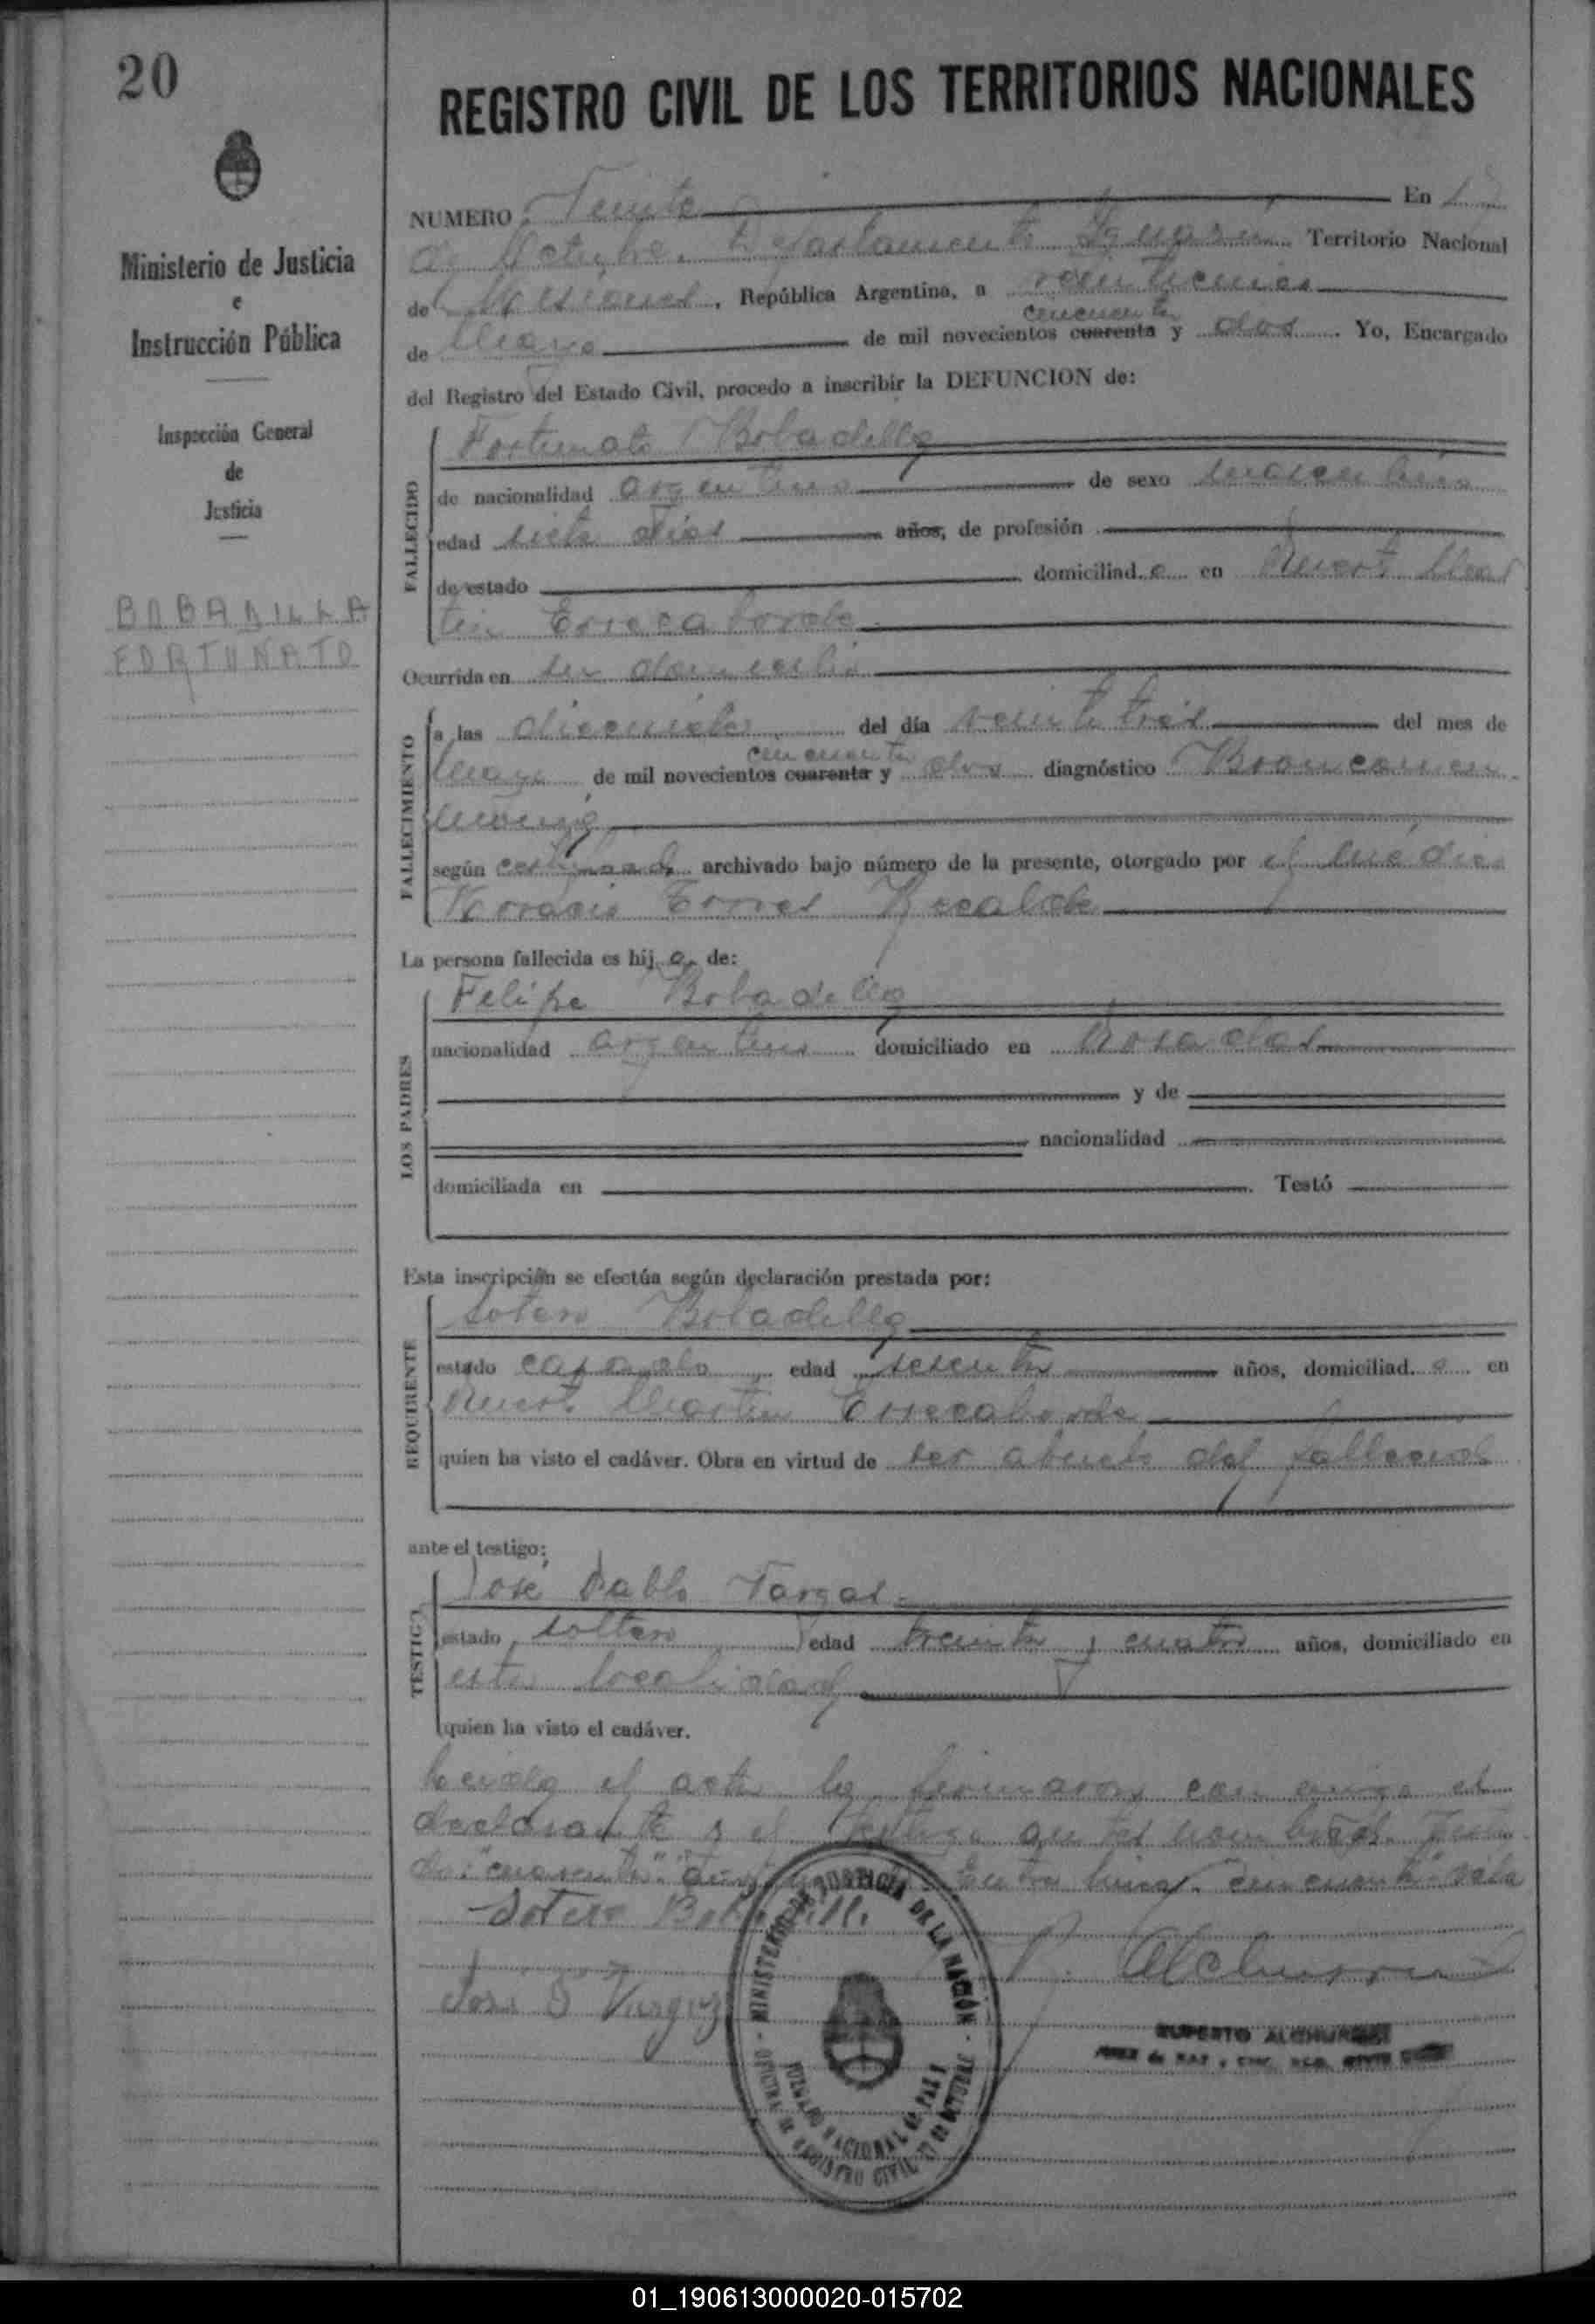 20
REGISTRO CIVIL DE LOS TERRITORIOS NACIONALES
Ministerio de Justicia
e
Instrucción Pública
Inspección General
de
Justicia
BOBADILLA
FORTUNATO
NUMERO Veinte En 17
de Octubre, Departamento Territorio Nacional
de Misiones, República Argentina, a veinticinco
cincuenta
de Mayo de mil novecientos cuarenta y dos. Yo, Encargado
del Registro del Estado Civil, procedo a inscribir la DEFUNCION de:
FALLECIDO
Fortunato Bobadilla
de nacionalidad argentino de sexo masculino
edad siete días años, de profesión
de estado domiciliad o en Puerto Mar
tin Errecaborde
Ocurrida en su domicilio
FALLECIMIENTO
a las diecisiete del día veintitrés del mes de
cincuenta
Mayo de mil novecientos cuarenta y dos diagnóstico Bronconeu
monia
según certificado archivado bajo número de la presente, otorgado por el médico
Horacio Torres Recalde
La persona fallecida es hij o de:
LOS PADRES
Felipe Bobadilla
nacionalidad argentino domiciliado en Posadas
y de
nacionalidad
domiciliada en Testó
Esta inscripción se efectúa según declaración prestada por:
REQUIRENTE
Sotero Bobadilla
estado casado edad sesenta años, domiciliad o en
Puerto Martin Errecaborde
quien ha visto el cadáver. Obra en virtud de ser abuelo del fallecido
ante el testigo:
TESTIGO
José Pablo Vargas
estado soltero edad treinta y cuatro años, domiciliado en
esta localidad
quien ha visto el cadáver.
Leida el acta la firmaron conmigo el
declarante y el testigo antes nombrados. Testa
do: "cuarenta" Entre lineas: "cincuenta" vale
Sotero Bobadilla
R. Alchurrut
José P Vargas
RUPERTO
JUEZ de PAZ
MINISTERIO DE JUSTICIA DE LA NACIÓN
JUZGADO NACIONAL DE PAZ
OFICINA DE REGISTRO CIVIL 17 DE OCTUBRE
01_190613000020-015702